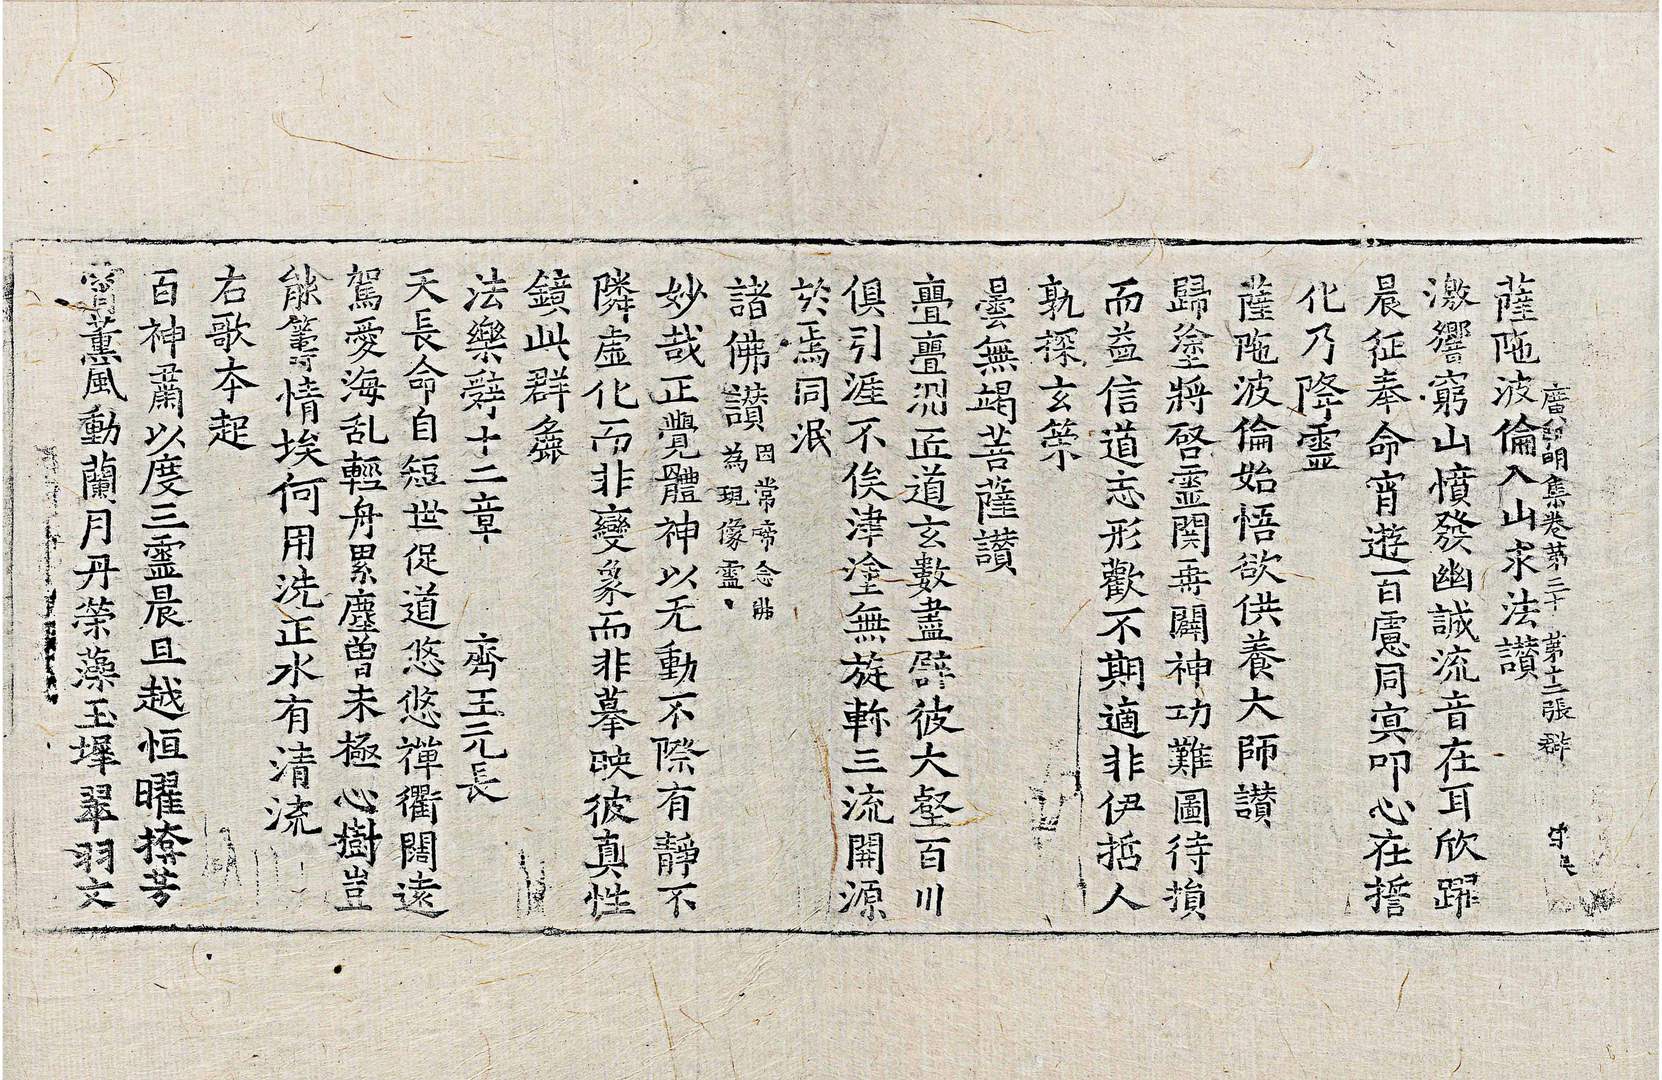 廣弘明集卷第三十　第十二張　群
薩陁波倫入山求法讃
激響窮山憤發幽誠流音在耳欣躍
晨征奉命宵遊百慮同冥叩心在誓
化乃降靈
薩陁波倫始悟欲供養大師讃
歸塗將啓靈関再闢神功難圖待損
而益信道忘形歡不期適非伊哲人
孰探玄策
曇無竭菩薩讃
亹亹淵匠道玄數盡譬彼大壑百川
俱引涯不俟津塗無旋軫三流開源
於焉同泯
諸佛讃
因常啼念佛
為現像靈
妙哉正覺體神以无動不際有靜不
隣虛化而非變象而非摹映彼真性
鏡此群麤
法樂辭十二章　齊王元長
天長命自短世促道悠悠禪衢闊遠
駕愛海乱輕舟累塵曾未極心樹豈
能籌情埃何用洗正水有清流
右歌本起
百神肅以虔三靈晨且越恒曜掩芳
宵薰風動蘭月丹榮藻玉墀翠羽文